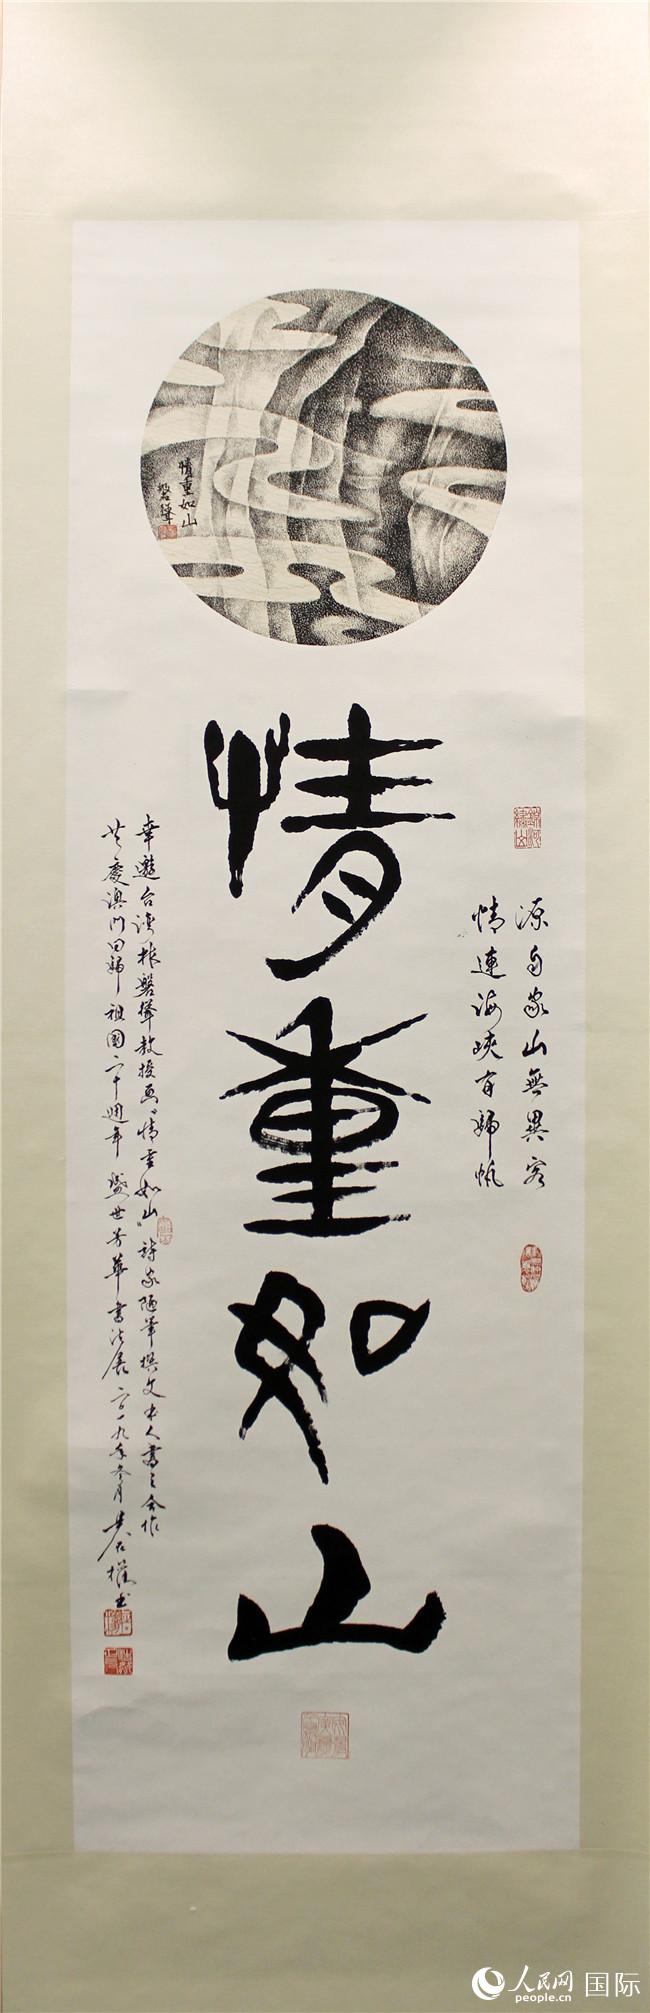 情重如山
磐錚
情重如山
源自家山無異客
情連海峽有歸帆
幸邀台灣林磐聳教授画“情重如山”詩家陋筆撰文本人書之合作
共慶澳門回歸祖國二十週年盛世芳華書法展二〇一九年冬月
人民网 国际
people.cn